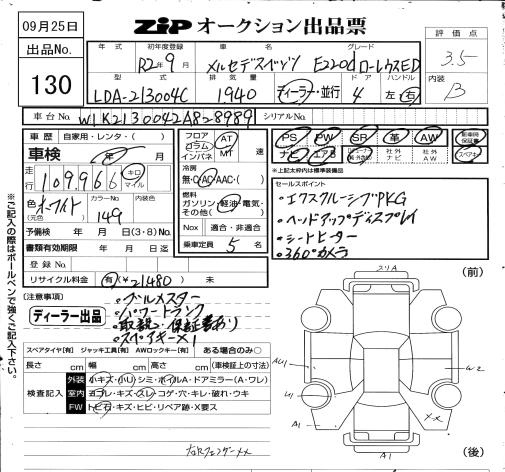 09月25日
ZIP オークション出品票
出品No.
130
年式 初年度登録 車名 グレード
R2年9月 メルセデスベンツ E220d ローレウスED
型式 排気量 ドア ハンドル
LDA-213004C 1940 ディーラー・並行 4 左 右
評価点
3.5
内装
B
車台No. W1K2130042A828989 シリアルNo.
車歴 自家用・レンタ・( )
車検 年 月
走行 109,966 キロ マイル
色(元色) ホワイト カラーNo. 149 内装色
予備検 年 月 日(3・8)No.
書類有効期限 年 月 日迄
登録No.
リサイクル料金 有(¥21480) 未
フロア コラム インパネ AT MT 速
冷房 無・AC・AAC・( )
燃料 ガソリン・軽油・電気・その他( )
Nox 適合・非適合
乗車定員 5 名
PS PW SR 革 AW 新車時保証書
ナビ エアB 社外ナビ 社外AW スペアキー
*上記太枠内は標準装備品
セールスポイント
・エクスクルーシブPKG
・ヘッドアップディスプレイ
・シートヒーター
・360°カメラ
(注意事項)
ディーラー出品
・ブルメスター
・パワートランク
・取説・保証書あり
・スペアキー×1
スペアタイヤ[有] ジャッキ工具[有] AWロックキー[有] ある場合のみ○
長さ cm 幅 cm 高さ cm (車検証上の寸法)
検査記入
外装 小キズ・小凹・シミ・ホイルA・ドアミラー(A・ワレ)
室内 ヨゴレ・キズ・スレ・コゲ・穴・キレ・破れ・ウキ
FW トビ石・キズ・ヒビ・リペア跡・X要ス
右Rフェンダー××
※ご記入の際はボールペンで強くご記入下さい。
(前)
スリA
AU1
W2
U1
××
A1
A1
(後)